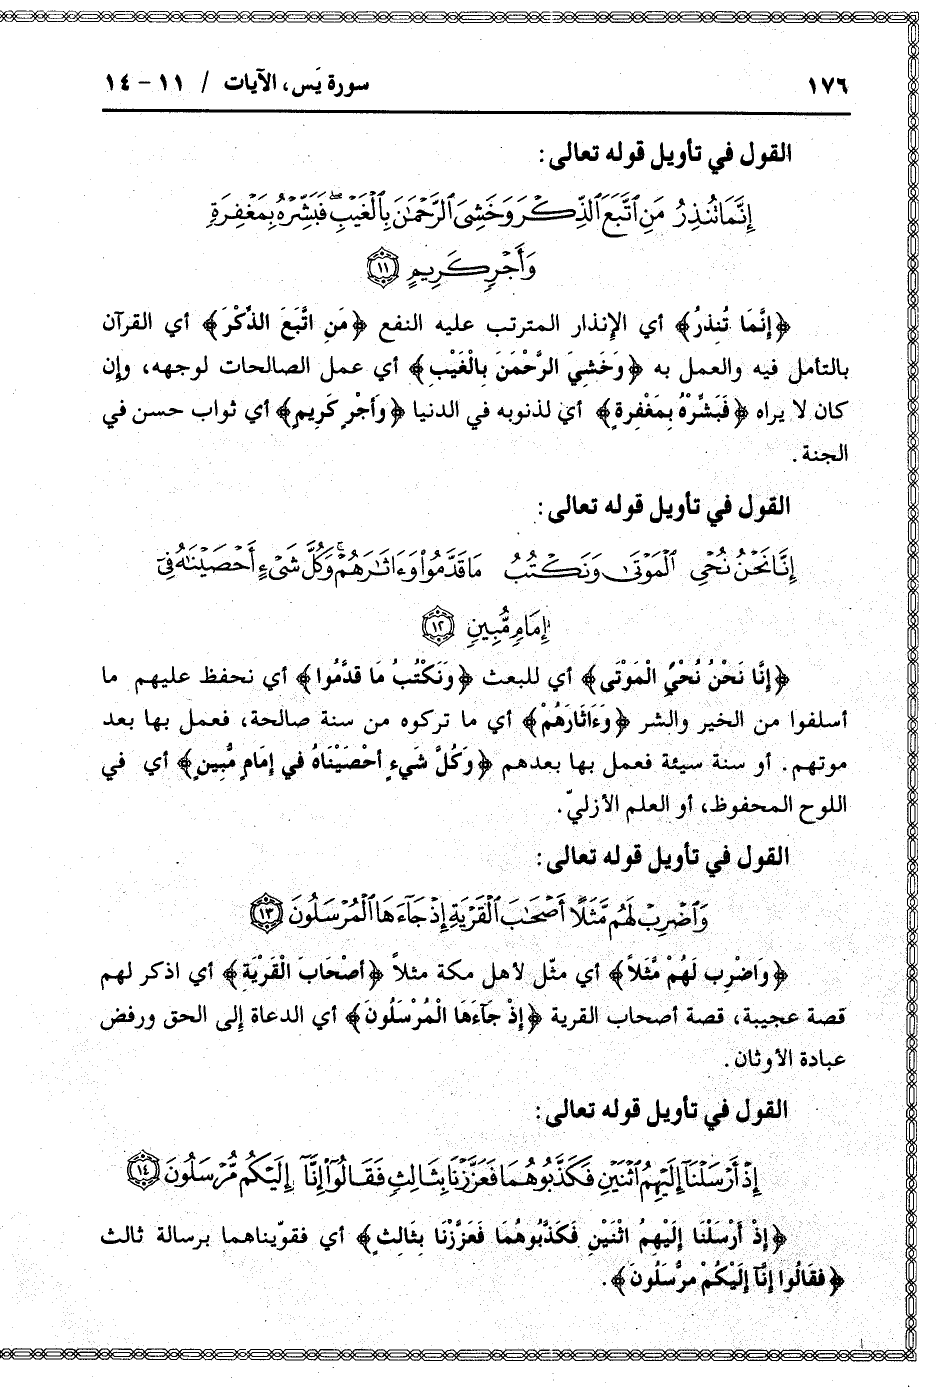 ١٧٦ سورة يَس، الآيات / ١١ - ١٤
القول في تأويل قوله تعالى:
إِنَّمَا تُنذِرُ مَنِ ٱتَّبَعَ ٱلذِّكْرَ وَخَشِيَ ٱلرَّحْمَٰنَ بِٱلْغَيْبِ ۖ فَبَشِّرْهُ بِمَغْفِرَةٍ
وَأَجْرٍ كَرِيمٍ ١١
﴿إِنَّمَا تُنذِرُ﴾ أي الإنذار المترتب عليه النفع ﴿مَنِ اتَّبَعَ الذِّكْرَ﴾ أي القرآن
بالتأمل فيه والعمل به ﴿وَخَشِيَ الرَّحْمَنَ بِالْغَيْبِ﴾ أي عمل الصالحات لوجهه، وإن
كان لا يراه ﴿فَبَشِّرْهُ بِمَغْفِرةٍ﴾ أي لذنوبه في الدنيا ﴿وَأجْرٍ كَرِيمٍ﴾ أي ثواب حسن في
الجنة.
القول في تأويل قوله تعالى:
إِنَّا نَحْنُ نُحْيِ ٱلْمَوْتَىٰ وَنَكْتُبُ مَا قَدَّمُوا۟ وَءَاثَٰرَهُمْ ۚ وَكُلَّ شَىْءٍ أَحْصَيْنَٰهُ فِىٓ
إِمَامٍ مُّبِينٍ ١٢
﴿إِنَّا نَحْنُ نُحْيِ الْمَوْتَى﴾ أي للبعث ﴿وَنَكْتُبُ مَا قدَّمُوا﴾ أي نحفظ عليهم ما
أسلفوا من الخير والشر ﴿وَءَاثَارَهُمْ﴾ أي ما تركوه من سنة صالحة، فعمل بها بعد
موتهم. أو سنة سيئة فعمل بها بعدهم ﴿وَكُلَّ شَيءٍ أحْصَيْنَاهُ في إمَامٍ مُّبِينٍ﴾ أي في
اللوح المحفوظ، أو العلم الأزليّ.
القول في تأويل قوله تعالى:
وَٱضْرِبْ لَهُم مَّثَلًا أَصْحَٰبَ ٱلْقَرْيَةِ إِذْ جَآءَهَا ٱلْمُرْسَلُونَ ١٣
﴿وَاضْرِب لَهُمْ مَّثَلاً﴾ أي مثّل لأهل مكة مثلاً ﴿أصْحَابَ الْقَرْيَة﴾ أي اذكر لهم
قصة عجيبة، قصة أصحاب القرية ﴿إِذْ جَآءَهَا الْمُرْسَلُونَ﴾ أي الدعاة إلى الحق ورفض
عبادة الأوثان.
القول في تأويل قوله تعالى:
إِذْ أَرْسَلْنَآ إِلَيْهِمُ ٱثْنَيْنِ فَكَذَّبُوهُمَا فَعَزَّزْنَا بِثَالِثٍ فَقَالُوٓا۟ إِنَّآ إِلَيْكُم مُّرْسَلُونَ ١٤
﴿إِذْ أَرْسَلْنَا إِلَيْهِمُ اثْنَيْنِ فَكَذَّبُوهُمَا فَعَزَّزْنَا بِثَالِثٍ﴾ أي فقوّيناهما برسالة ثالث
﴿فقَالُوا إنَّآ إِلَيْكُمْ مرُّسَلُونَ﴾.